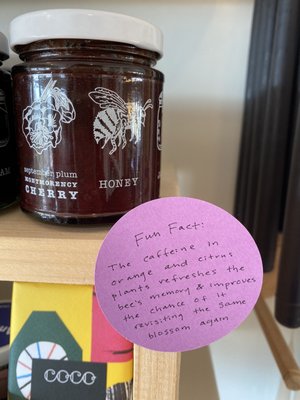 september plum
MONTMORENCY
CHERRY
HONEY
Fun Fact:
The caffeine in
orange and citrus
plants refreshes the
bee's memory & improves
the chance of it
revisiting the same
blossom again
COCO